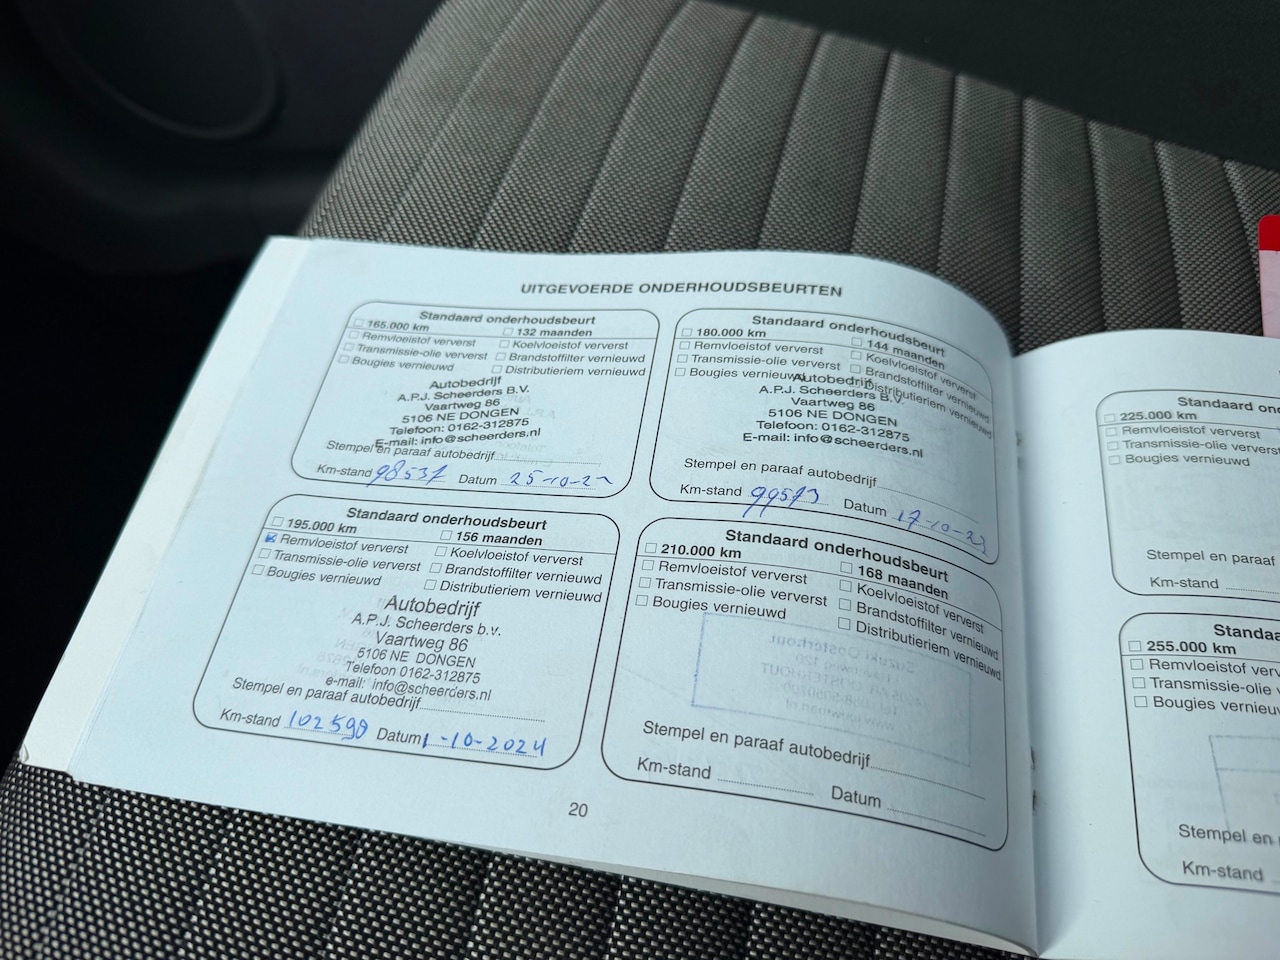 UITGEVOERDE ONDERHOUDSBEURTEN
Standaard onderhoudsbeurt
165.000 km 132 maanden
Remvloeistof ververst Koelvloeistof ververst
Transmissie-olie ververst Brandstoffilter vernieuwd
Bougies vernieuwd Distributieriem vernieuwd
Autobedrijf
A.P.J. Scheerders B.V.
Vaartweg 86
5106 NE DONGEN
Telefoon: 0162-312875
E-mail: info@scheerders.nl
Stempel en paraaf autobedrijf
Km-stand 98537 Datum 25-10-22
Standaard onderhoudsbeurt
180.000 km 144 maanden
Remvloeistof ververst Koelvloeistof ververst
Transmissie-olie ververst Brandstoffilter vernieuwd
Bougies vernieuwd Distributieriem vernieuwd
Autobedrijf
A.P.J. Scheerders B.V.
Vaartweg 86
5106 NE DONGEN
Telefoon: 0162-312875
E-mail: info@scheerders.nl
Stempel en paraaf autobedrijf
Km-stand 99573 Datum 17-10-23
Standaard onderhoudsbeurt
195.000 km 156 maanden
Remvloeistof ververst Koelvloeistof ververst
Transmissie-olie ververst Brandstoffilter vernieuwd
Bougies vernieuwd Distributieriem vernieuwd
Autobedrijf
A.P.J. Scheerders b.v.
Vaartweg 86
5106 NE DONGEN
Telefoon 0162-312875
e-mail: info@scheerders.nl
Stempel en paraaf autobedrijf
Km-stand 102590 Datum 1-10-2024
Standaard onderhoudsbeurt
210.000 km 168 maanden
Remvloeistof ververst Koelvloeistof ververst
Transmissie-olie ververst Brandstoffilter vernieuwd
Bougies vernieuwd Distributieriem vernieuwd
Stempel en paraaf autobedrijf
Km-stand Datum
20
Standaard
225.000 km
Remvloeistof ververst
Transmissie-olie ververst
Bougies vernieuwd
Stempel en paraaf
Km-stand
Standaa
255.000 km
Remvloeistof ververs
Transmissie-olie v
Bougies vernieuw
Stempel en
Km-stand